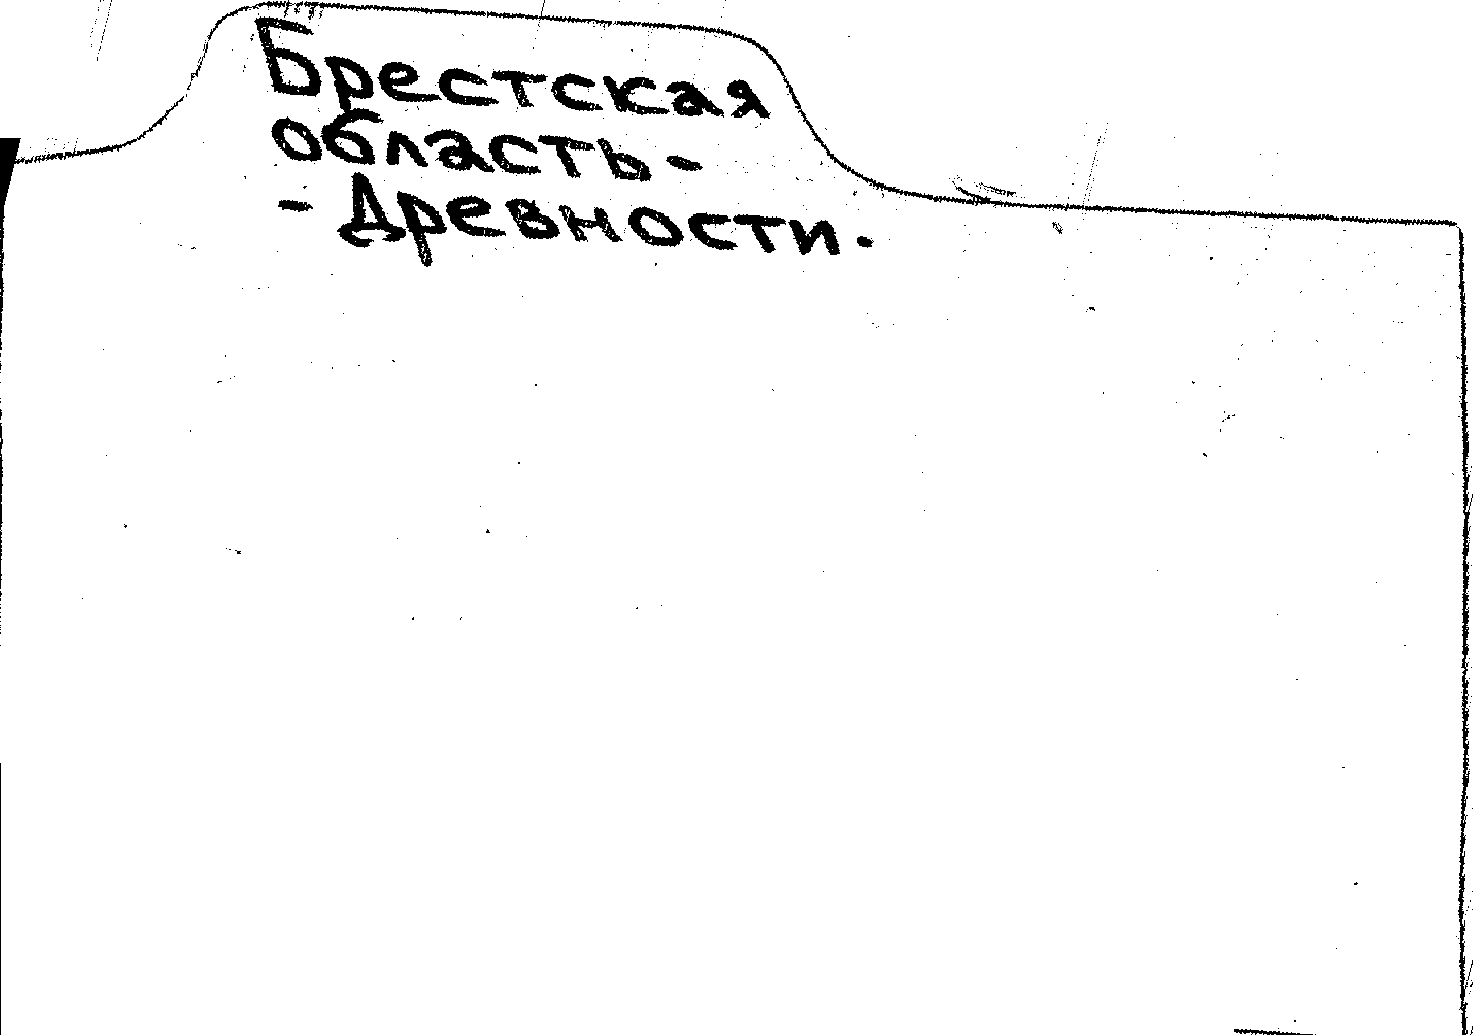 Брестская
область -
- Древности.